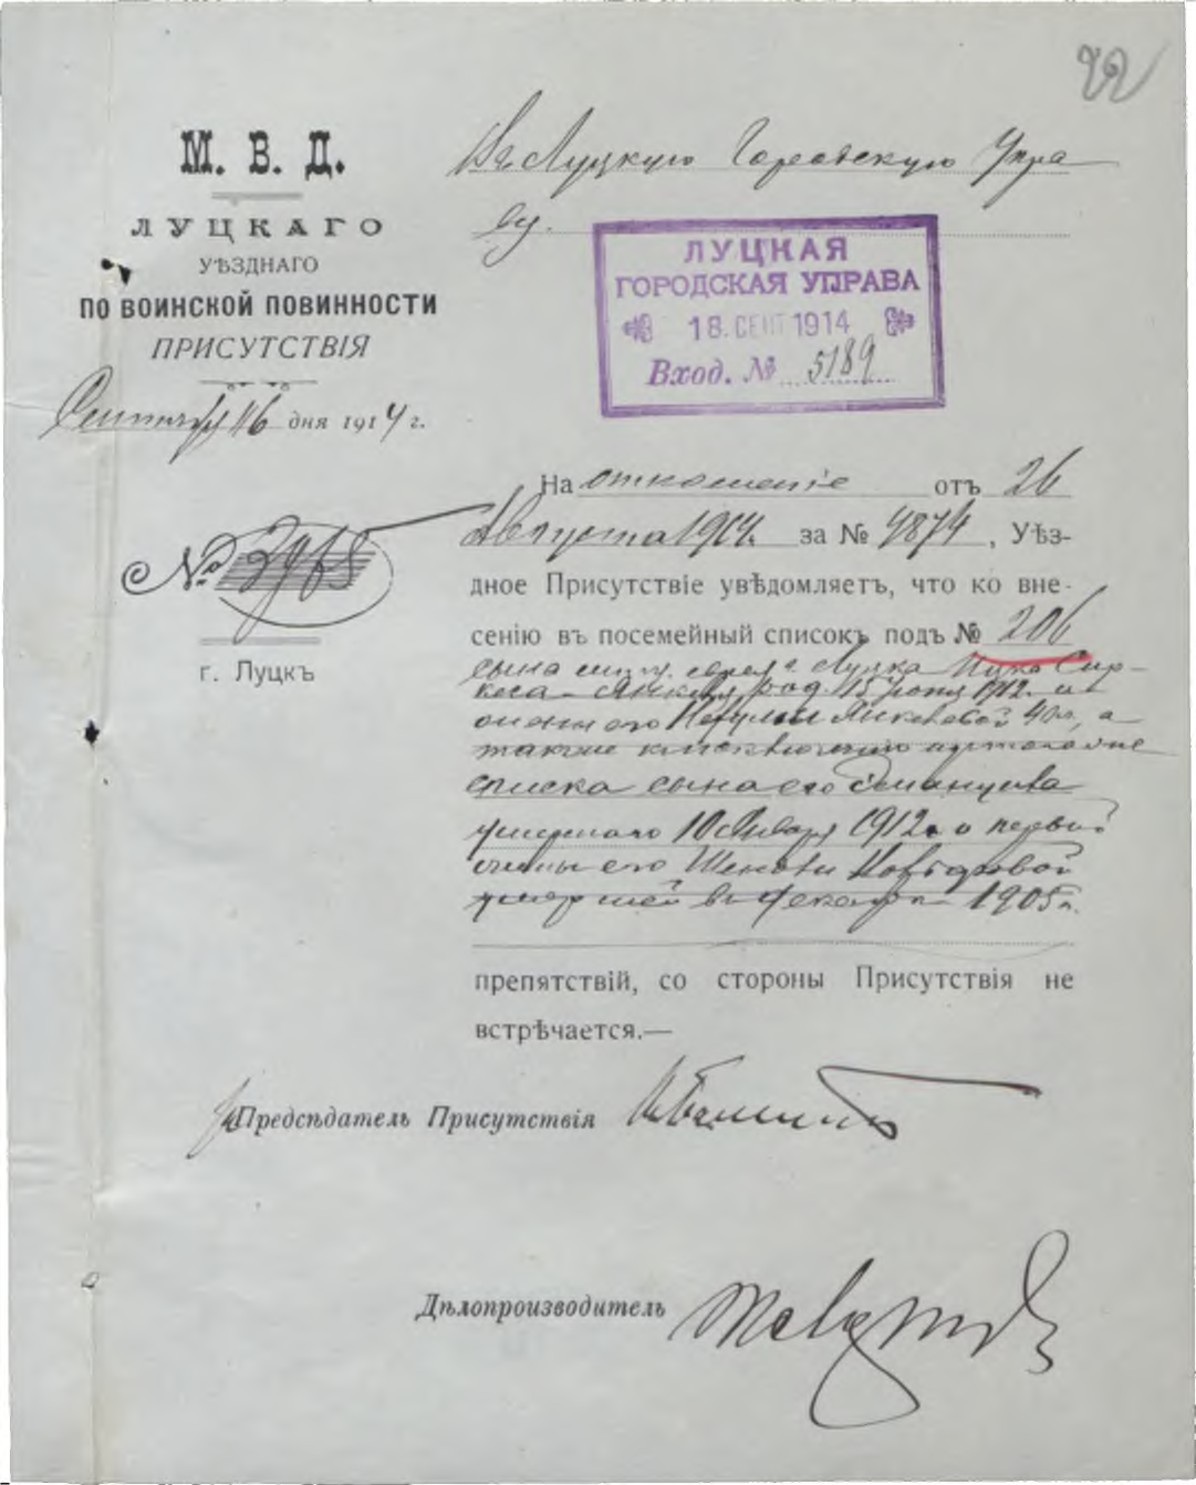 22
М. В. Д.
ЛУЦКАГО
УѢЗДНАГО
ПО ВОИНСКОЙ ПОВИННОСТИ
ПРИСУТСТВІЯ
Сентября 16 дня 1914 г.
№ 3968
г. Луцкъ
Въ Луцкую Городскую Упра
ву.
ЛУЦКАЯ
ГОРОДСКАЯ УПРАВА
18. СЕНТ 1914
Вход. № 5189
На отношеніе отъ 26
Августа 1914. за № 4874, Уѣз-
дное Присутствіе увѣдомляетъ, что ко вне-
сенію въ посемейный списокъ подъ № 206
сына мѣщ. евр. г. Луцка Сир-
кеса Янкеля, род. 15 1912 г. и
жены его Янкелевой 40 л., а
также къ исключенію
списка сына его Эмануила
умершаго 10 Января 1912 г. и первой
жены его
умершей въ Декабрѣ 1905 г.
препятствій, со стороны Присутствія не
встрѣчается.—
Предсѣдатель Присутствія
Дѣлопроизводитель